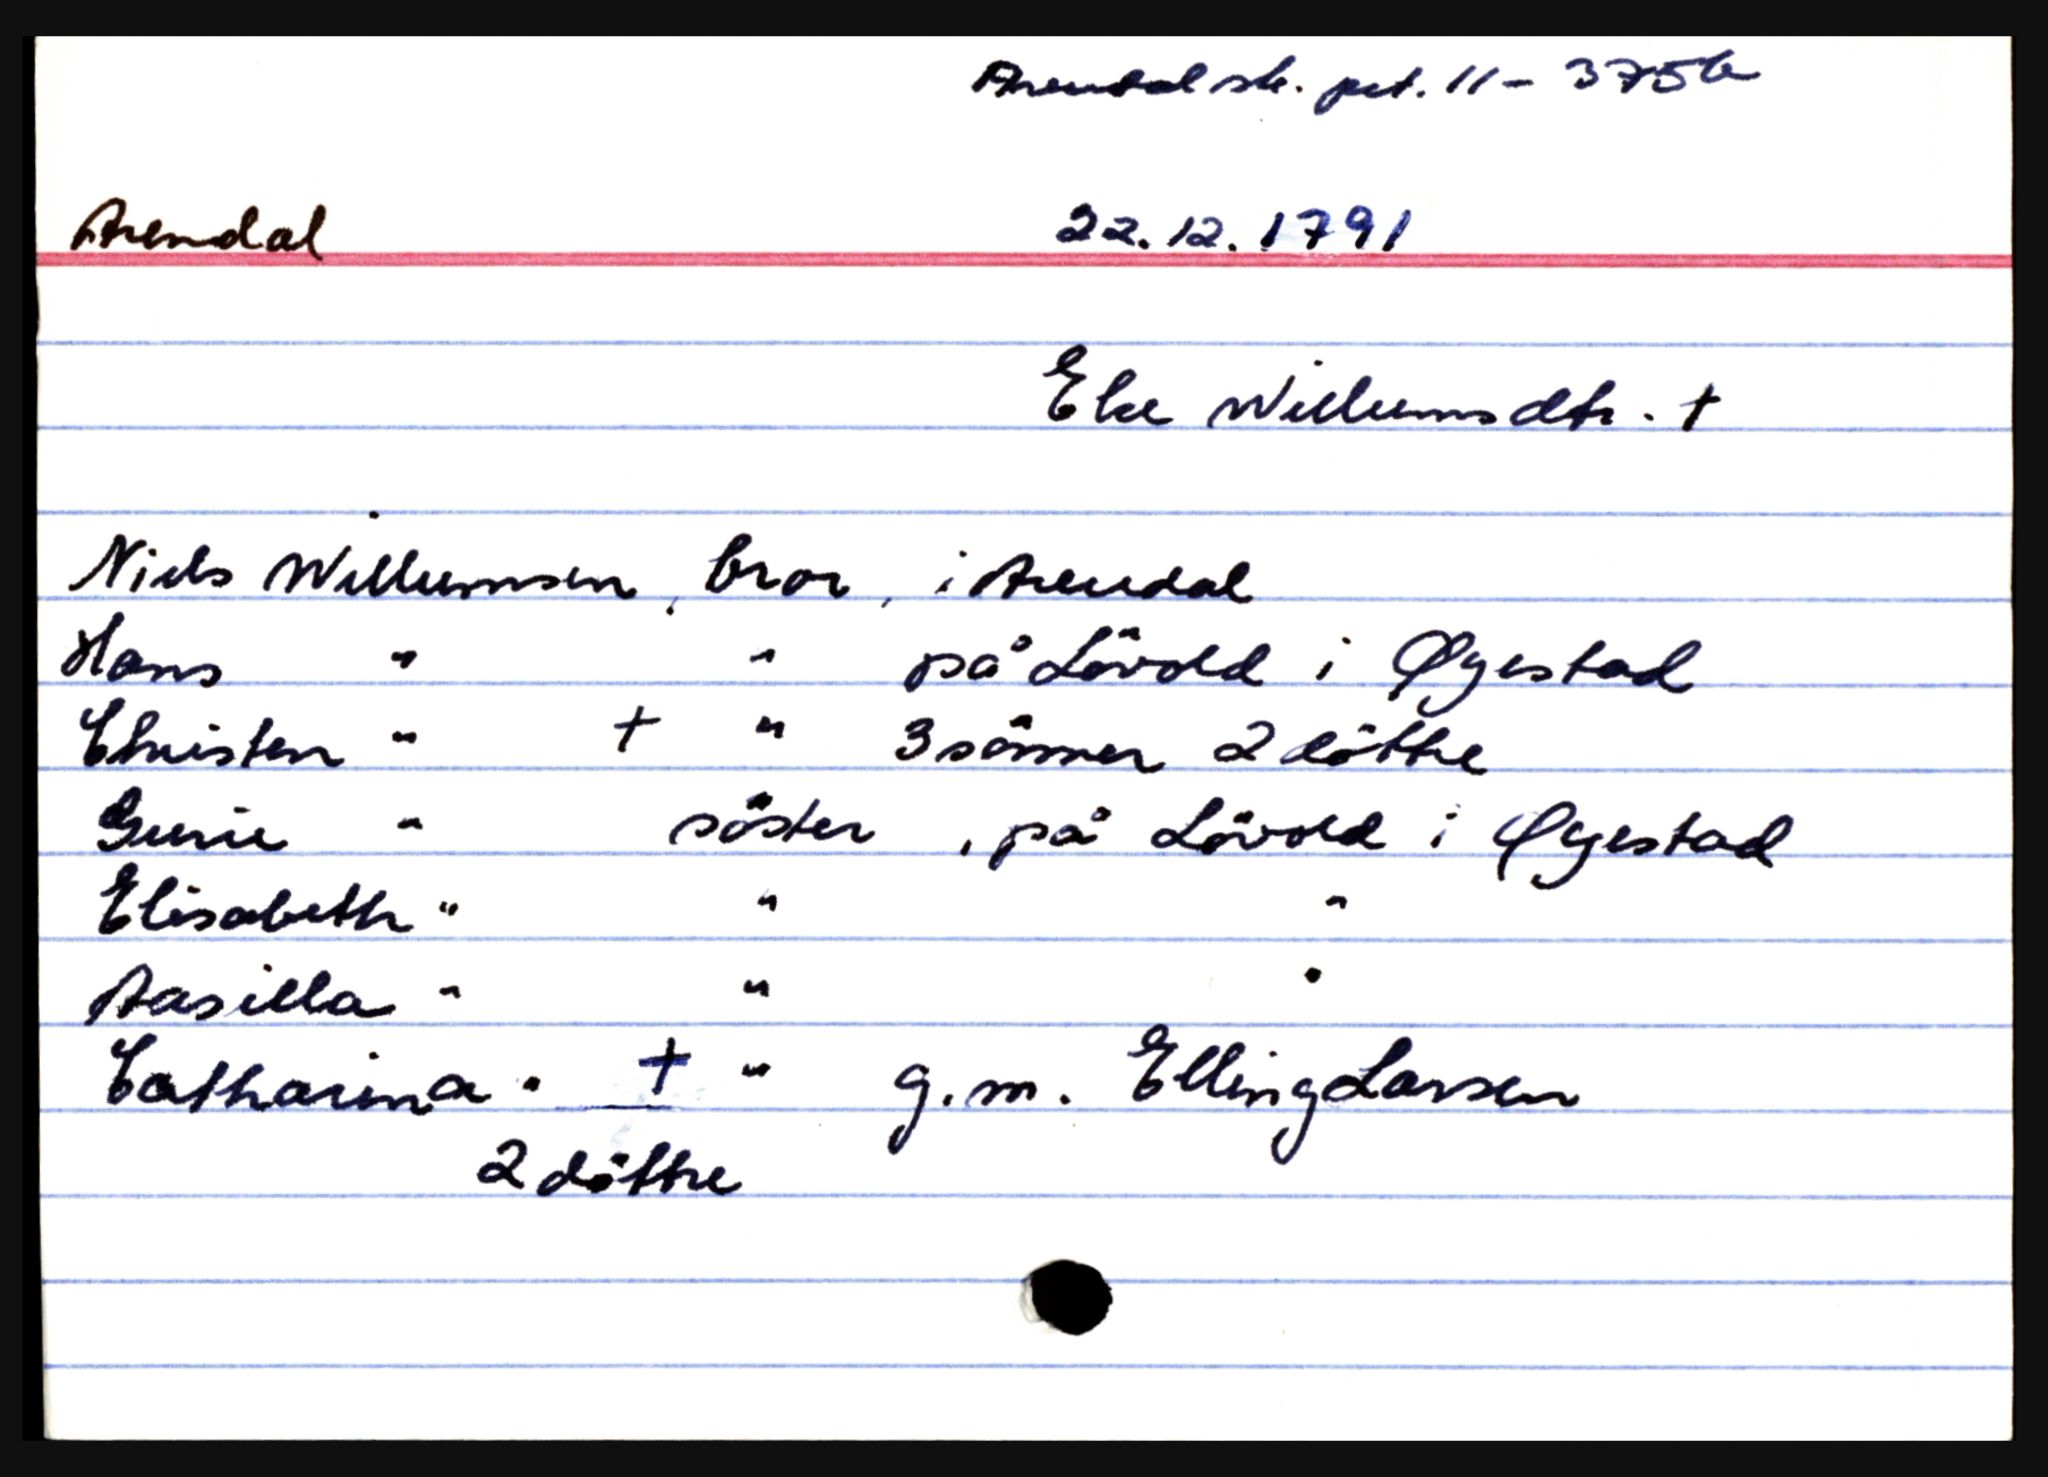 Arendal sk. prt. 11 - 375b
Arendal 22.12.1791
Else Willumsdtr. †
Niels Willumsen, bror, i Arendal
Hans " " på Lövold i Øyestad
Christen " † " 3 sönner 2 döttre
Gunie " söster, på Lövold i Øyestad
Elisabeth " " "
Aasilla " " "
Catharina " † " g.m. Elling Larsen
2 döttre